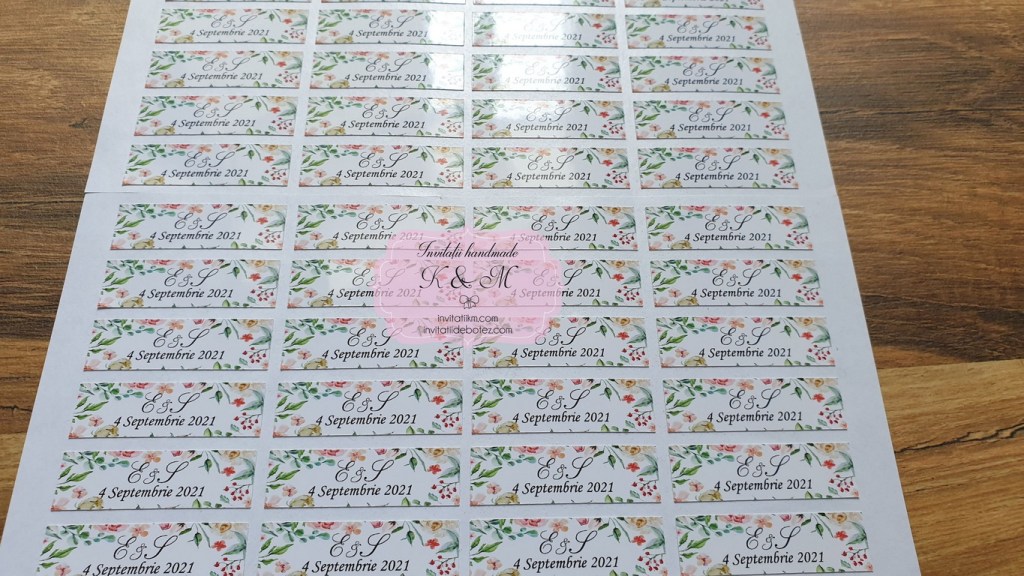 E&S E&S E&S E&S
4 Septembrie 2021 4 Septembrie 2021 4 Septembrie 2021 4 Septembrie 2021
E&S E&S E&S E&S
4 Septembrie 2021 4 Septembrie 2021 4 Septembrie 2021 4 Septembrie 2021
E&S E&S E&S E&S
4 Septembrie 2021 4 Septembrie 2021 4 Septembrie 2021 4 Septembrie 2021
E&S E&S E&S E&S
4 Septembrie 2021 4 Septembrie 2021 4 Septembrie 2021 4 Septembrie 2021
E&S E&S E&S E&S
4 Septembrie 2021 4 Septembrie 2021 4 Septembrie 2021 4 Septembrie 2021
Invitatii handmade
K & M
invitatiikm.com
invitatiidebotez.com
E&S E&S E&S
4 Septembrie 2021 4 Septembrie 2021 4 Septembrie 2021
E&S E&S E&S E&S
4 Septembrie 2021 4 Septembrie 2021 4 Septembrie 2021 4 Septembrie 2021
E&S E&S E&S E&S
4 Septembrie 2021 4 Septembrie 2021 4 Septembrie 2021 4 Septembrie 2021
E&S E&S E&S E&S
4 Septembrie 2021 4 Septembrie 2021 4 Septembrie 2021 4 Septembrie 2021
E&S E&S E&S E&S
4 Septembrie 2021 4 Septembrie 2021 4 Septembrie 2021 4 Septembrie 2021